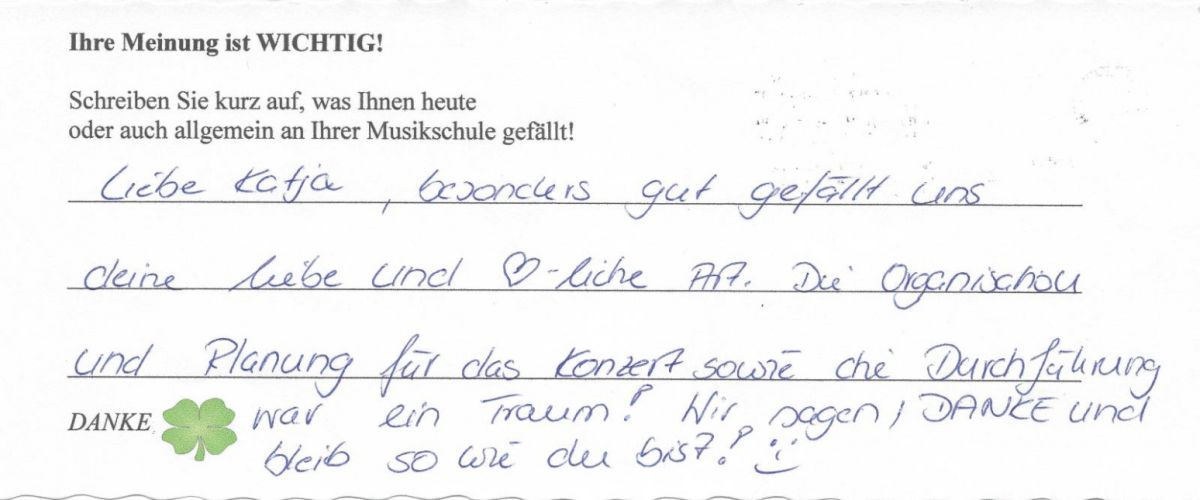 Ihre Meinung ist WICHTIG!
Schreiben Sie kurz auf, was Ihnen heute
oder auch allgemein an Ihrer Musikschule gefällt!
Liebe Katja, besonders gut gefällt uns
deine liebe und ♡-liche Art. Die Organischon
und Planung für das Konzert sowie die Durchführung
DANKE war ein Traum! Wir sagen, DANKE und
bleib so wie du bist! :)